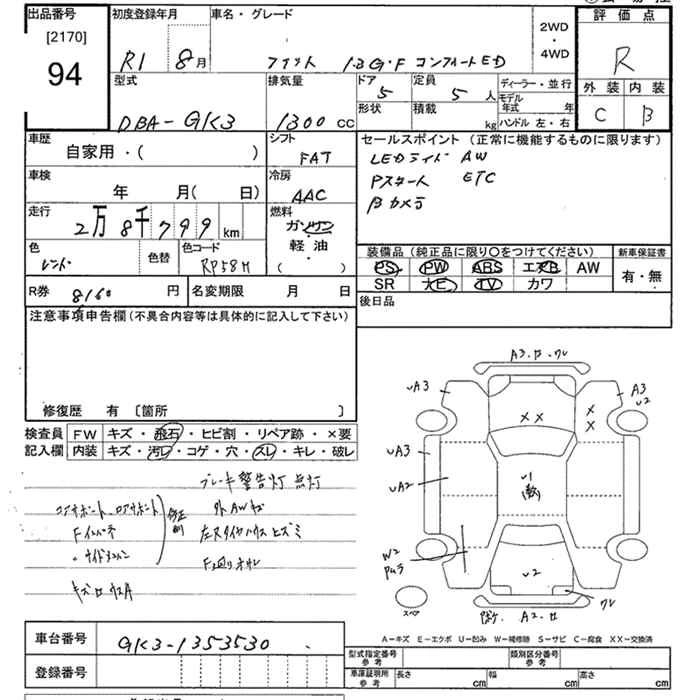 出品番号
[2170]
94
初度登録年月
R1 8月
車名・グレード
フィット 1.3G・F コンフォートED
2WD
・
4WD
評価点
R
外装 内装
C B
型式
DBA-GK3
排気量
1300 cc
ドア
5
形状
定員
5 人
積載
kg
ディーラー・並行
モデル年式 年
ハンドル 左・右
車歴
自家用・( )
シフト
FAT
セールスポイント (正常に機能するものに限ります)
LEDライト AW
Pスタート ETC
Bカメラ
車検
年 月( 日)
冷房
AAC
走行
2万8千799 km
燃料
ガソリン
軽油
( )
色
レッド
色替
色コード
RP58M
装備品 (純正品に限り〇をつけてください)
新車保証書
PS PW ABS エアB AW
SR ナビ TV カワ
有・無
R券 8160 円
名変期限 月 日
後日品
注意事項申告欄 (不具合内容等は具体的に記入して下さい)
修復歴 有 〔箇所 〕
検査員記入欄
FW キズ・飛石・ヒビ割・リペア跡・×要
内装 キズ・汚レ・コゲ・穴・スレ・キレ・破レ
ブレーキ警告灯点灯
コアサポート、ロアサポート
Fインパネ
外AWキズ
A3
UA3
A3
U2
XX
X
X
UA3
UA2
U1
W2
U2
ワレ
スペア
A2
A-キズ E-エクボ U-凹み W-補修跡 S-サビ C-腐食 XX-交換済
車台番号
GK3-1353530
登録番号
型式指定番号
参考
類別区分番号
参考
車庫証明用
参考
長さ cm
幅 cm
高さ cm